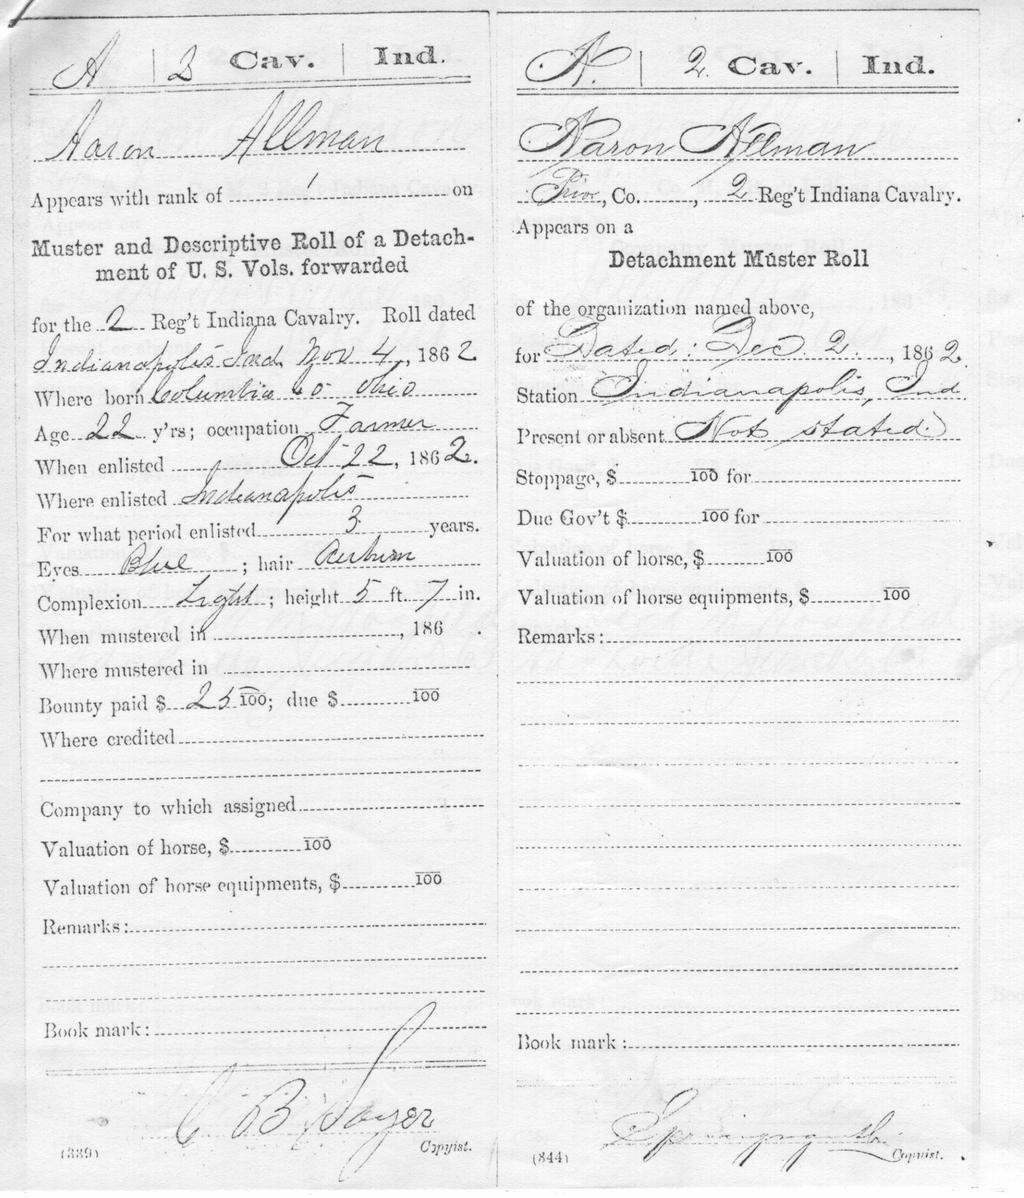 A | 3 Cav. | Ind.
Aaron Allman
Appears with rank of / on
Muster and Descriptive Roll of a Detach-
ment of U. S. Vols. forwarded
for the 2 Reg't Indiana Cavalry. Roll dated
Indianapolis Ind. Nov 4, 1862
Where born Columbia Co Ohio
Age 22 y'rs; occupation Farmer
When enlisted Oct 22, 1862.
Where enlisted Indianapolis
For what period enlisted 3 years.
Eyes Blue ; hair Auburn
Complexion Light ; height 5 ft. 7 in.
When mustered in , 186 .
Where mustered in
Bounty paid $ 25 100; due $ 100
Where credited
Company to which assigned
Valuation of horse, $ 100
Valuation of horse equipments, $ 100
Remarks:
Book mark:
C B Sayer
(339) Copyist.
A. | 2 Cav. | Ind.
Aaron Allman
Priv, Co. , 2 Reg't Indiana Cavalry.
Appears on a
Detachment Muster Roll
of the organization named above,
for Dated: Dec. 2, 1862.
Station Indianapolis, Ind
Present or absent Not stated.
Stoppage, $ 100 for
Due Gov't $ 100 for
Valuation of horse, $ 100
Valuation of horse equipments, $ 100
Remarks:
Book mark:
(844) Copyist.